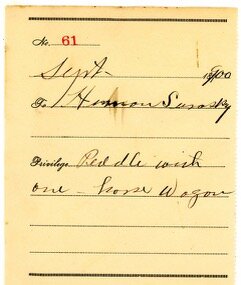 No. 61
Sept 1900
To Harmon Sarasky
Privilege Peddle with
one - horse Wagon